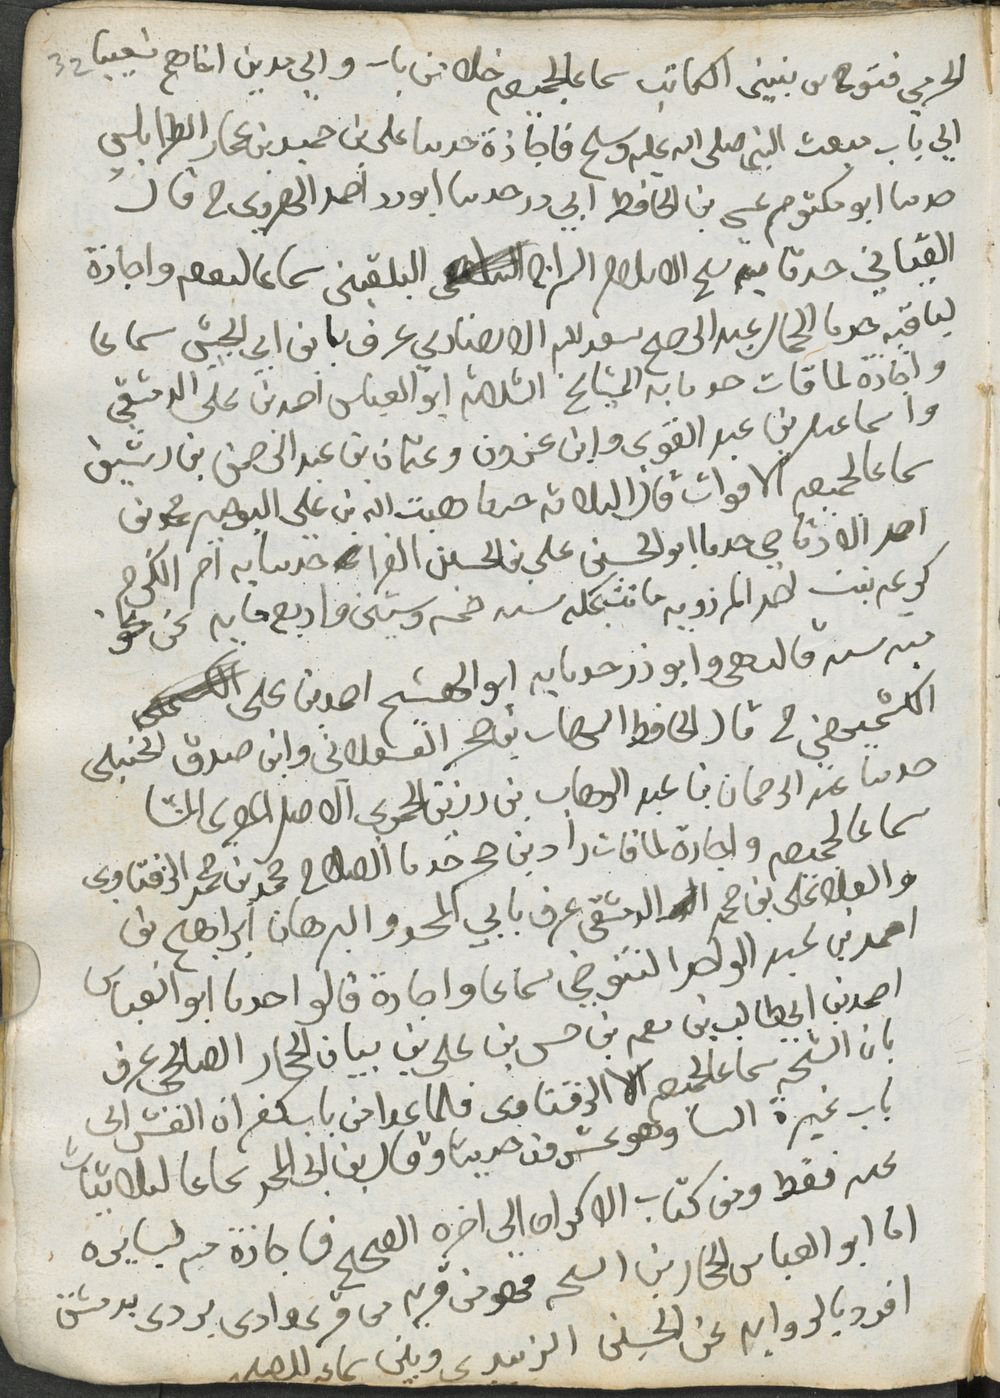 32
الحرمي فتوح بن بنين الكاتب سماعا لجميعه خلا من باب والي مدين اخاهم شعيبا
الي باب مبعث النبي صلى الله عليه وسلم فاجازة حدثنا علي بن حميد بن عمار الطرابلسي
حدثنا ابو مكتوم عيسى بن الحافظ ابي ذر حدثنا ابو ذر احمد الهروي ح قال
القباني حدثنا به شيخ الاسلام السراج البلقيني سماعا لبعضه واجازة
لباقيه حدثنا الجمال عبد الرحيم الانصاري عرف بابن ابي الجيش سماعا
واجازة لما فات حدثنا به المشايخ الثلاثة ابو العباس احمد بن علي الدمشقي
واسماعيل بن عبد القوي وابن عزون وعثمان بن عبد الرحمن بن رشيق
سماعا لجميعه الا فوات قال الثلاثة حدثنا هبت الله بن علي البوصيري محمد بن
احمد الارتاجي حدثنا ابو الحسن علي بن الحسين الفرا حدثنا به ام الكرام
كريمه بنت احمد المرزويه ما تت بمكه سنه خمسه وستين واربع مايه عن نحو
ميه سنه قالت هي وابو ذر حدثنا به ابو الهيثم احمد بن علي
الكشميهني ح قال الحافظ الشهاب بن حجر العسقلاني وابن صدق الحنبلي
حدثنا عبد الرحمان بن عبد الوهاب بن رزين الحموي الاصل المصري المنشا
سماعا لجميعه واجازة لما فات زاد بن حجر حدثنا الصلاح محمد بن محمد الزفتاوي
والعلا علي بن محمد الدمشقي عرف بابي المجد والبرهان ابراهيم بن
احمد بن عبد الواحد التنوخي سماعا واجازة قالوا حدثنا ابو العباس
احمد بن ابي طالب بن نعمه بن حسن بن علي بن بيان الحجار الصالحي عرف
بابن الشحنه سماعا لجميعه الا الزفتاوي فلما عدا من باب كفران العشر الى
باب غيرة النسا وهو عشرون حديثا وقال بن ابي المجد سماعا لثلاثيات
عنه فقط ومن كتاب الاكراه الي اخره الصحيح فاجازة منه لسايره
انا ابو العباس الحجار بن الشحنه فهو من قريه من قرى وادى بردى بدمشق
افرد بالروايه عن الحسين الزبيدي وبين سماعه للصحيح